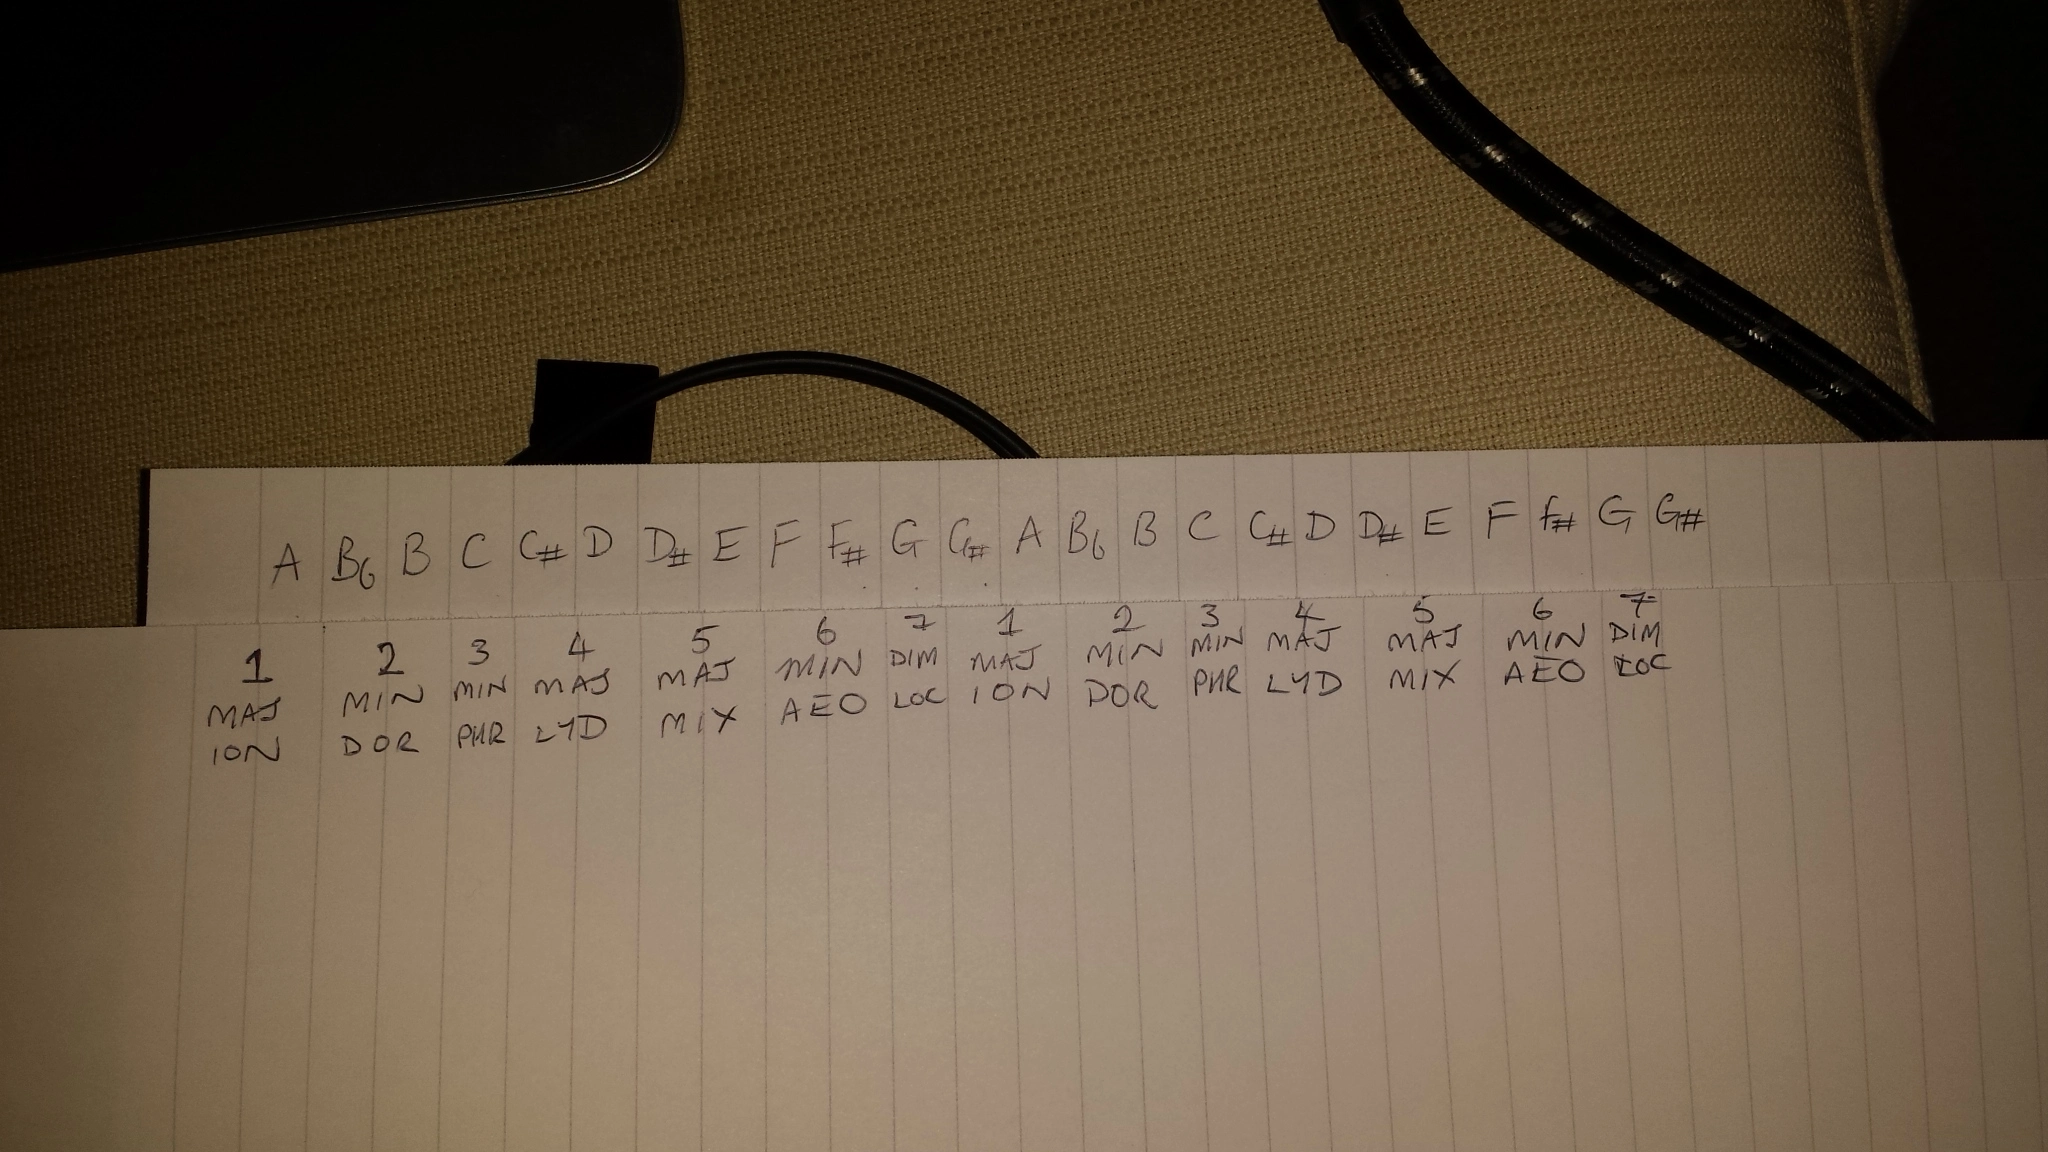 A Bb B C C# D D# E F F# G G# A Bb B C C# D D# E F F# G G#
1 2 3 4 5 6 7 1 2 3 4 5 6 7
MAJ MIN MIN MAJ MAJ MIN DIM MAJ MIN MIN MAJ MAJ MIN DIM
ION DOR PHR LYD MIX AEO LOC ION DOR PHR LYD MIX AEO LOC